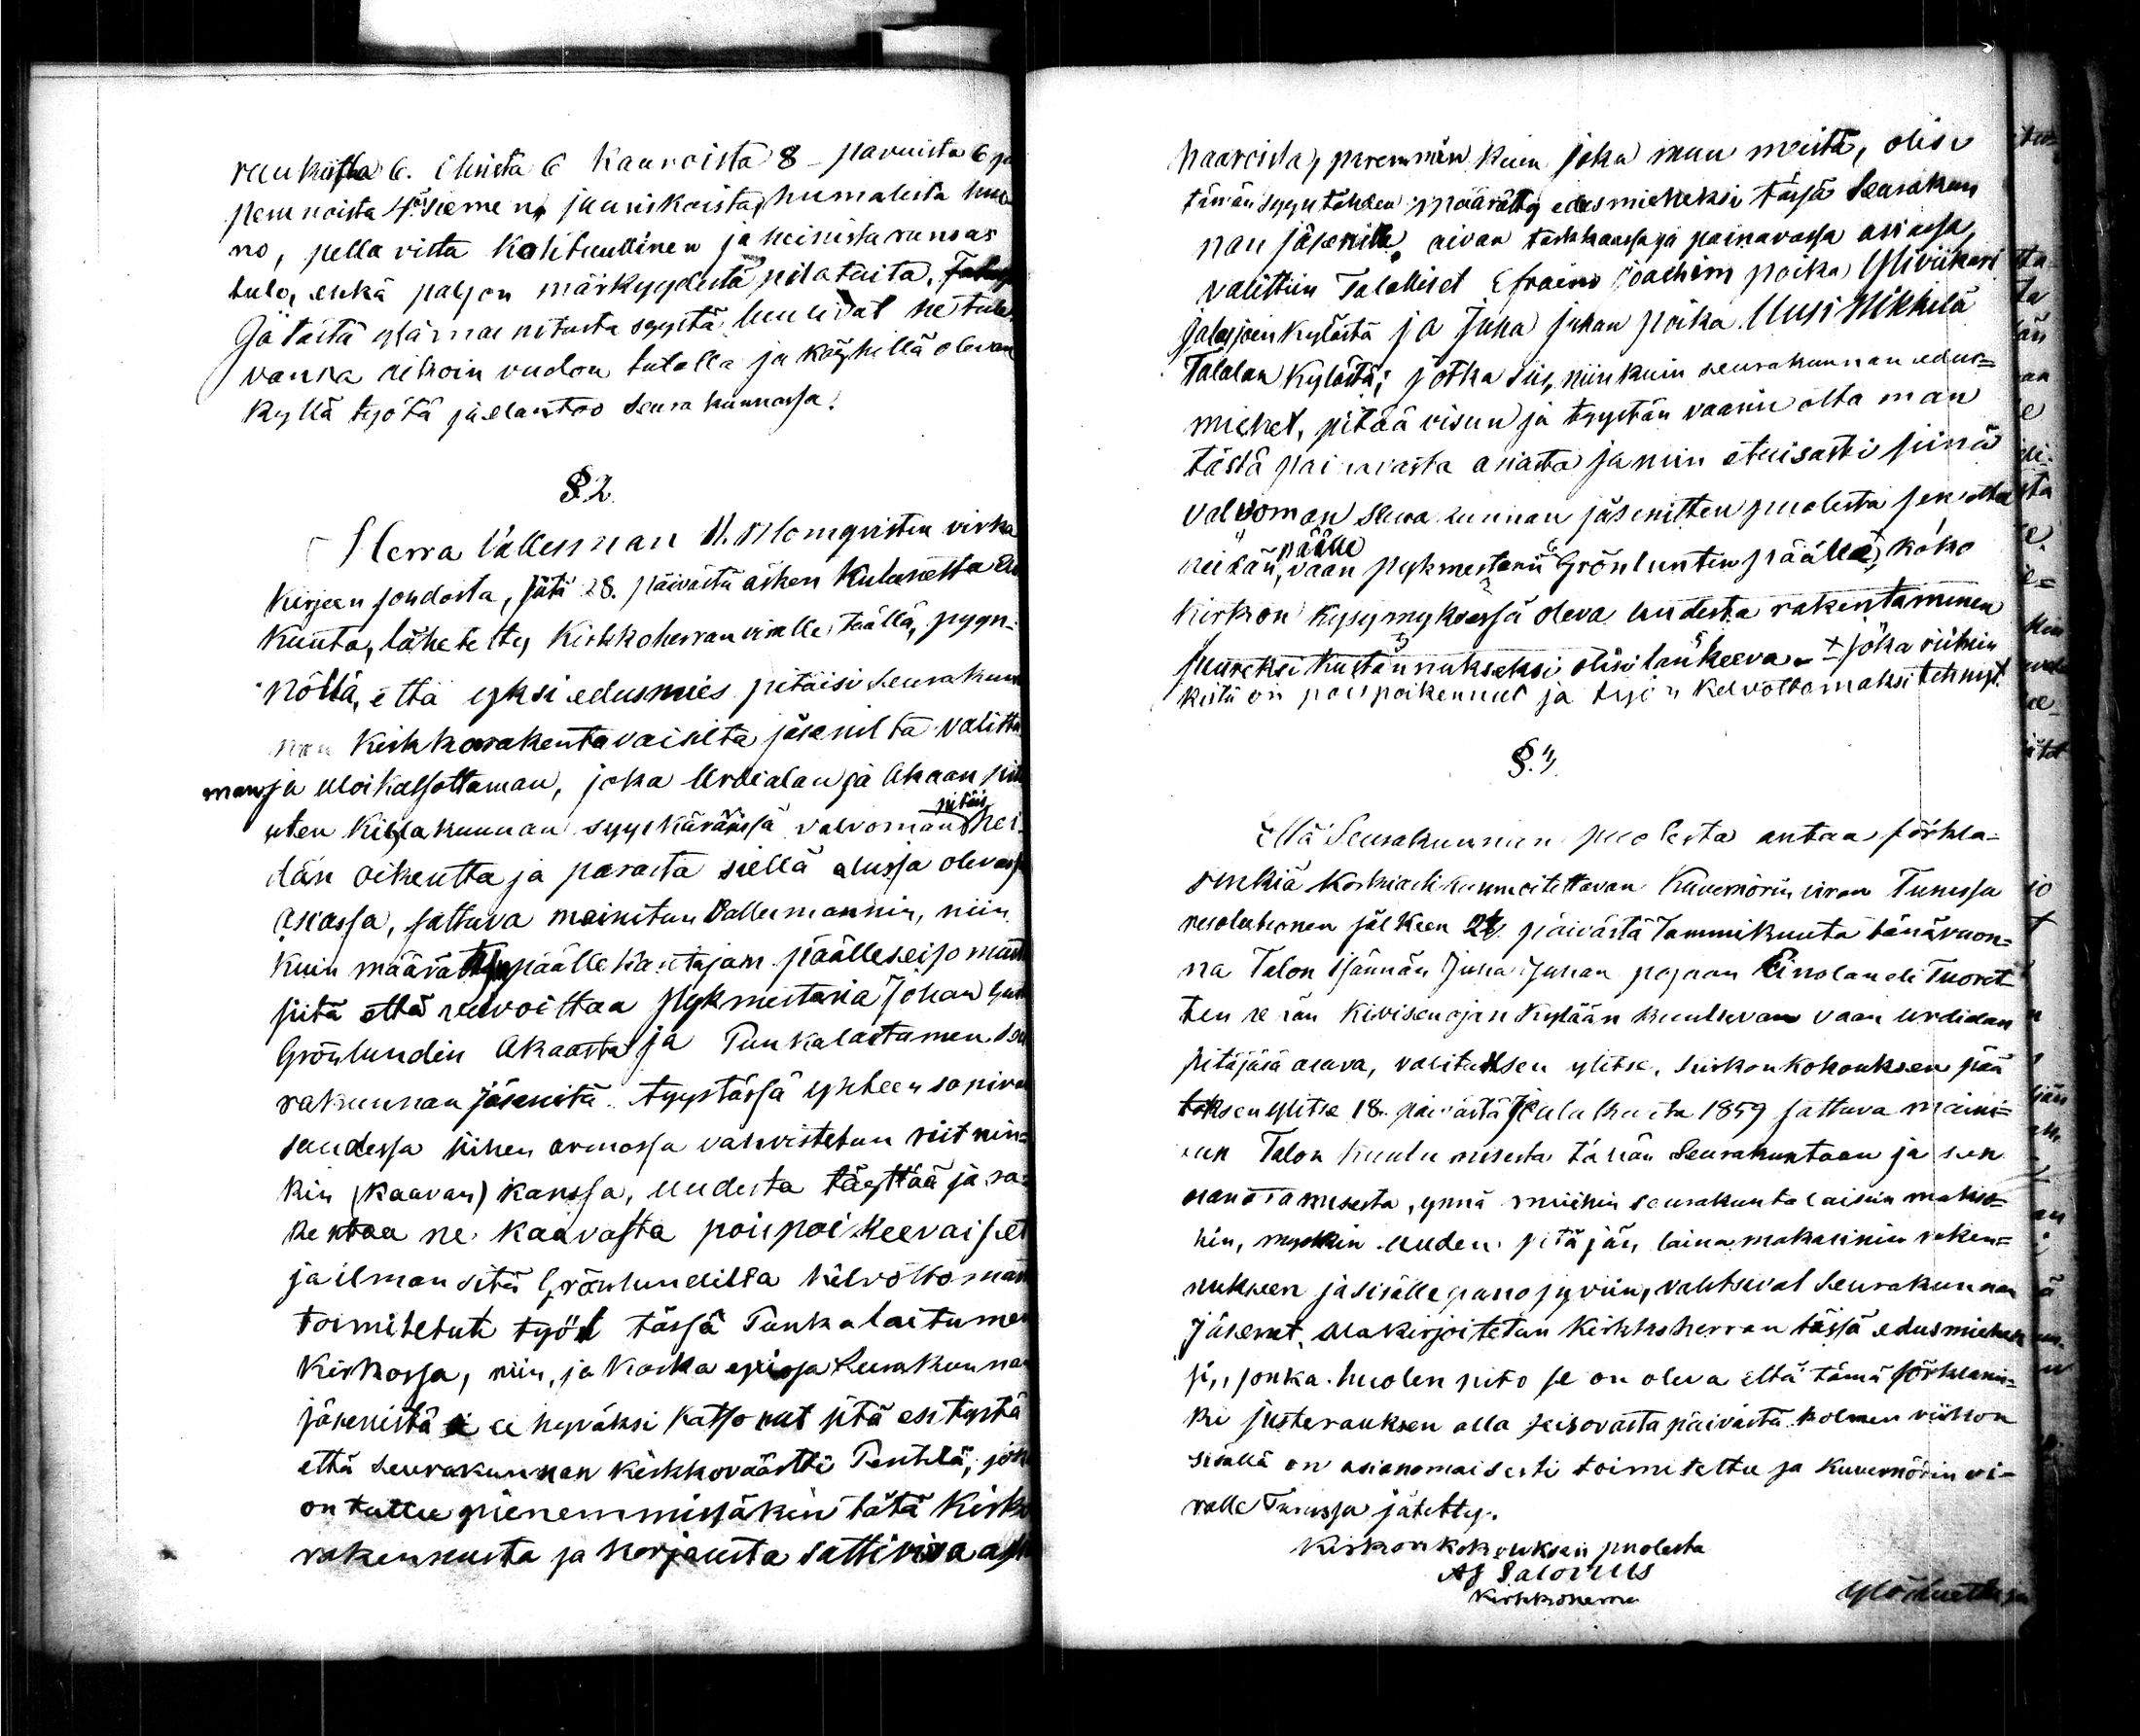 6. Ohrista 6 Kauroista 8 - pavuista 6 ja
no, pellavista Kohtuullinen ja heinista runsas
tulo, enkä paljon märkyydestä pilatuita.
Ja tästä ylämainitusta syystä luulivat he tule
vansa aikoin vuoden tulolla ja köyhillä olevan
Kyllä työtä ja elantoo Seurakunnassa.
§ 2.
Herra Vallesman Blomqvistin virka
Kirjeen johdosta, siitä 28. päivästä äsken kulunetta
Kuuta, lähetetty Kirkkoherran viralle täällä, pyyn-
nöllä, että yksi edusmies pitäisi Seurakun
nan Kirkkorakentavaisilta jäseniltä valitta
man ja uloskatsottaman, joka Urdialan ja Akaan pitä
jäten Kihlakunnan syyskäräissä valvoman pitäis hei-
dän oikeutta ja parasta siellä alussa olevassa
asiassa, sattuva mainitun Vallesmannin, niin
Kuin määrätyn päällekantajan päälleseisomast
siitä että velvoittaa Pykmestaria Johan
Grönlundin Akaasta ja Punkalaitumen Seu
rakunnan jäsenitä tyystässä yhteen sopivai
suudessa siihen armossa vahvistetun riitnin=
kin (kaavan) kanssa, uudesta täyttää ja ra=
kentaa ne kaavasta poispoikeevaiset
ja ilman sitä Grönlundilta kelvottoman
toimitetut työt tässä Punkalaitumen
Kirkossa, niin, ja koska Seurakunnan
jäsenistä ei hyväksi katsonut sitä esitystä
että Seurakunnan Kirkkoväärtti Pentilä, jok
on tullu pienemmissäkin tätä Kirko
rakennusta ja korjausta sattuvissa asi
haaroista, paremmin kuin joka muu meistä, olisi
tämän syyn tähden määrätty edesmieheksi tässä Seurakun
nan jäsenille, aivan tarkkaassa ja painavassa asiassa,
valittiin Talolliset Efraim Joachim poika Yliviikari
Jalasjoen Kylästä ja Juha Juhan poika Uusi Nikkilä
Talalan Kylästä; jotka siis, niinkuin seurakunnan edus=
miehet, pitää visun ja tyystän vaarin ottaman
tästä painavasta asiasta ja niin etuisasti siinä
valvoman Seurakunnan jäsenitten puolesta sen
heidän päälle, vaan pykmestarii Grönluntin päällä, koko
Kirkon Kysymyksessä oleva uudesta rakentaminen
suureksi Kustannukseksi olisi lankeeva - + joka riitnin
kistä on poispoikennut ja työn kelvottomaksi tehnyt.
§. 3.
Että Seurakunnan puolesta antaa förkla-
rinkiä Korkiasti kunnioitettavan Kuvernörin viran Turussa
resolutionen jälkeen 21. päivästä Tammikuuta tänävuon=
na Talon Isännän Juha Juhan pojaan Einolan eli Tuoret-
ten Kivisenojan Kylään kuuluvan vaan Urdialan
Pitäjäsä asuva, valituksen ylitse, kirkonkokouksen pää
töksen ylitse 18. päivästä Joulukuuta 1859 sattuva maini=
tun Talon kuulumisesta tähän Seurakuntaan ja sen
osanottamisesta, ynnä muihin seurakuntalaisiin makso=
hin, myöskin uuden pitäjän lainamakasinin raken=
nukseen ja sisälle panojyviin, valitsivat Seurakunnan
Jäsenet, Alakirjoitetun Kirkkoherran tässä edusmiehek
si, jonka huolenpito se on oleva että tämä förklarin=
ki justerauksen alla seisovasta päivästä kolmen viikon
sisällä on asianomaisesti toimitettu ja Kuvernörin vi-
ralle Turussa jätetty.
Kirkonkokouksen puolesta
Salovius
Kirkkoherra